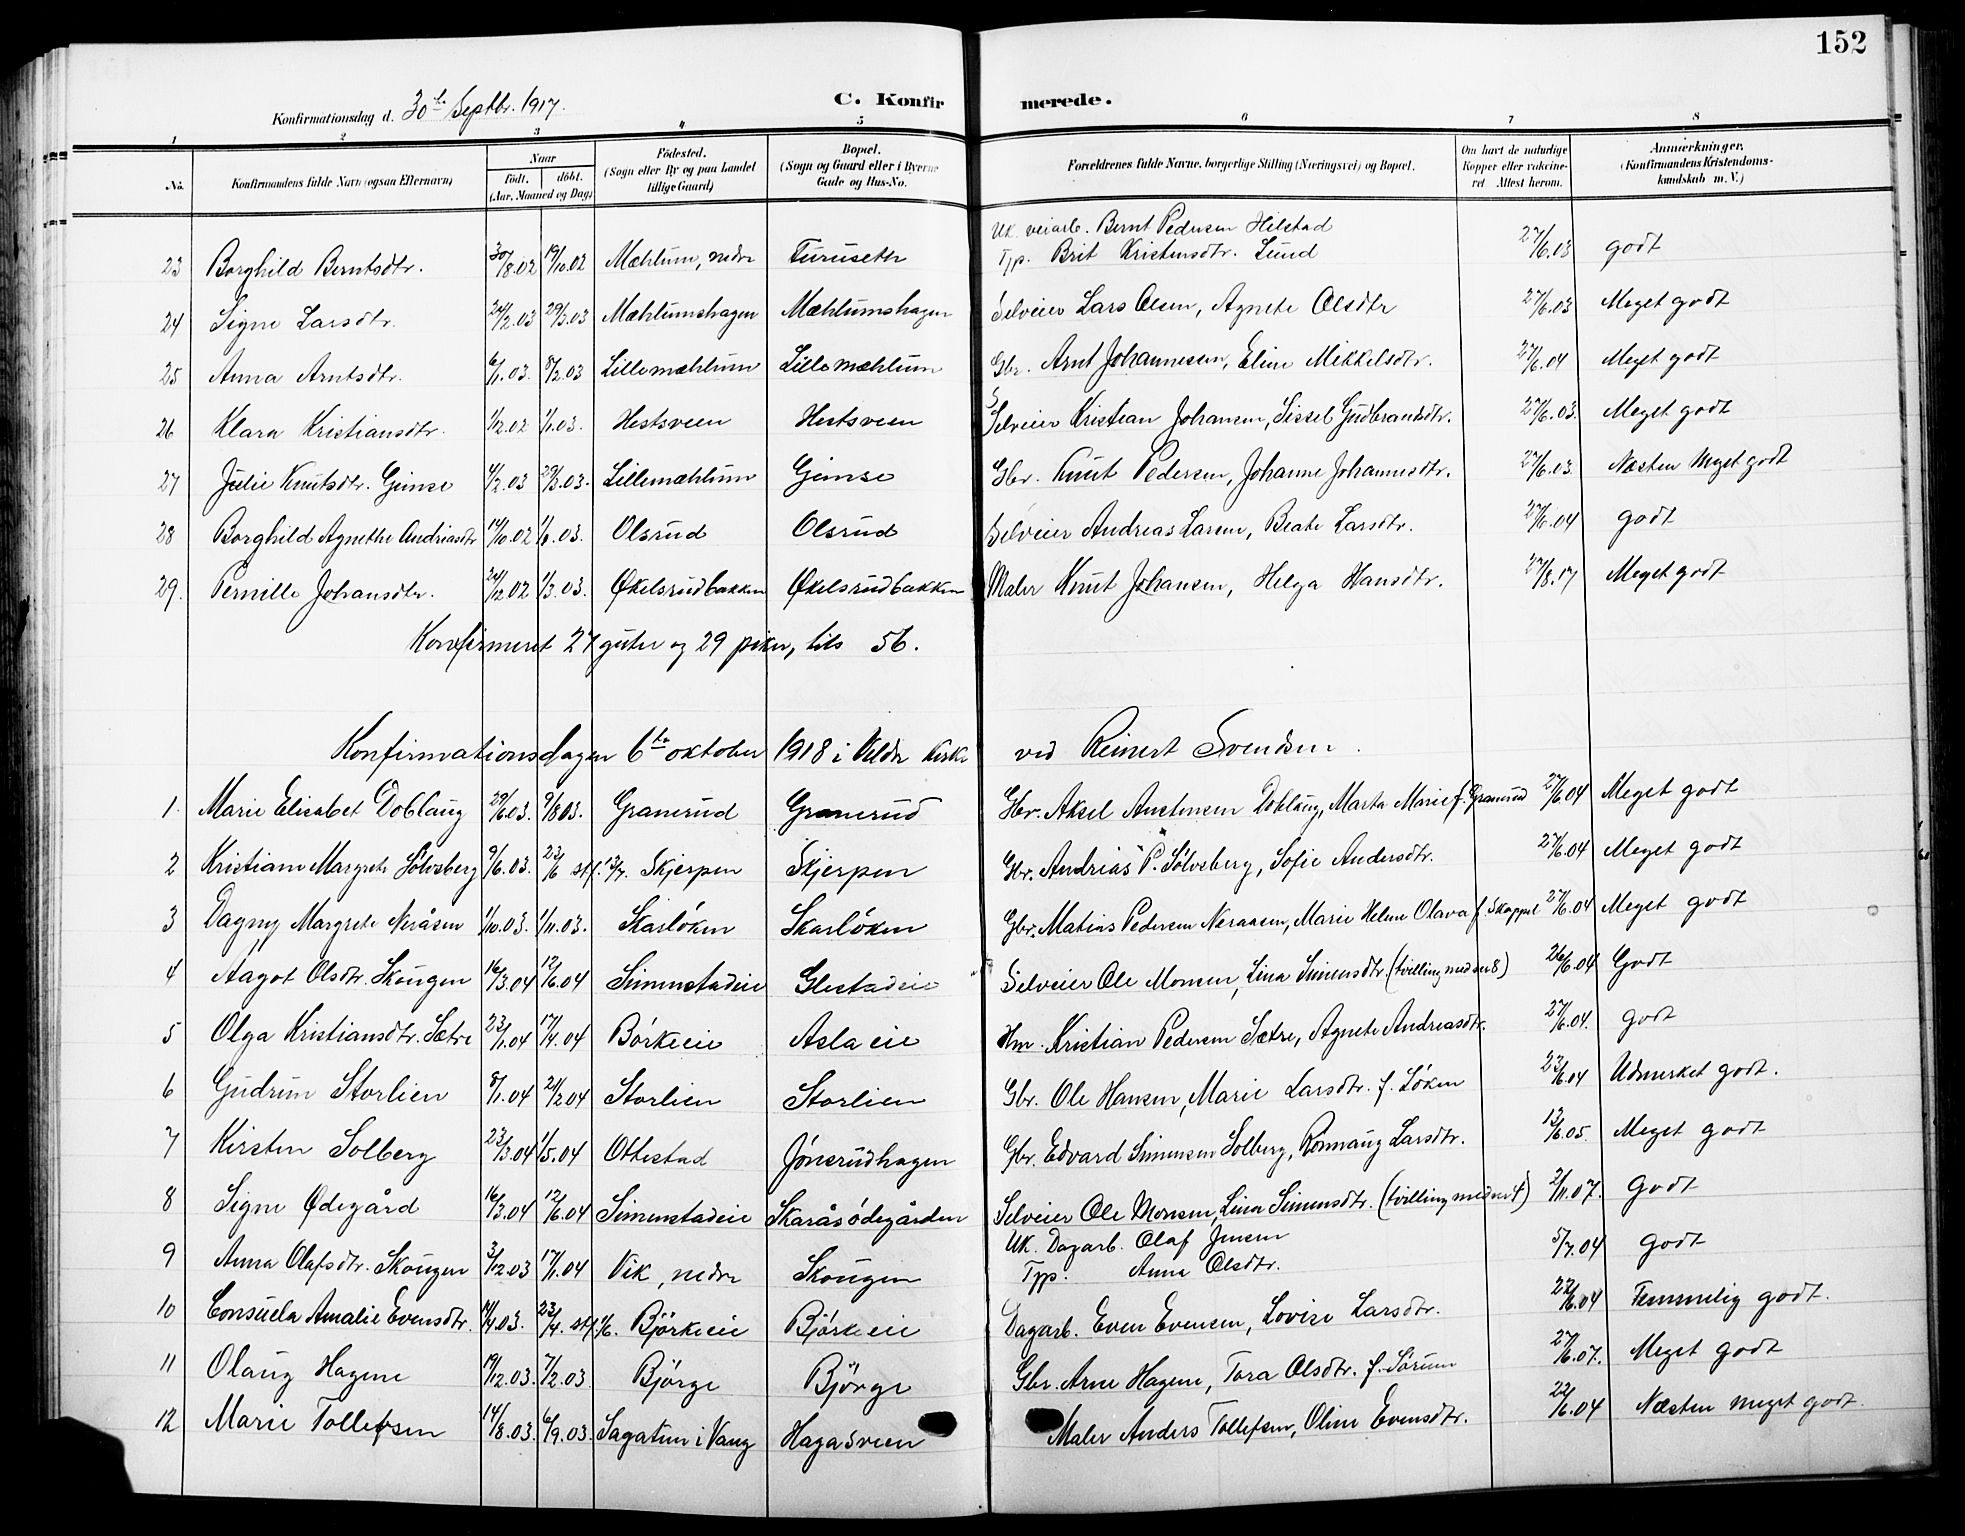 152
Konfirmationsdag d. 30te Septbr. 1917.
C. Konfirmerede.
1 2 3 4 5 6 7 8
No. Konfirmandens fulde Navn (ogsaa Efternavn) Naar födt. döbt. (Aar, Maaned og Dag) Födested. (Sogn eller By og paa Landet tillige Gaard) Bopæl. (Sogn og Gaard eller i Byerne Gade og Hus-No. Forældrenes fulde Navne, borgerlige Stilling (Næringsvei) og Bopæl. Om havt de naturlige Kopper eller vakcineret Attest herom. Anmærkninger. (Konfirmandens Kristendomskundskab m. V.)
23 Borghild Berntsdtr. 30/8.02 19/10.02 Mæhlum, nedre Furuseth Uk. veiarb. Bernt Pedersen Hilstad Typ. Brit Kristensdtr. Lund 27/6.03 godt
24 Signe Larsdtr. 24/2.03 29/3.03 Mæhlumshagen Mæhlumshagen Selveier Lars Olsen, Agnete Olsdtr 27/6.03 Meget godt
25 Anna Arntsdtr. 6/1.03. 8/2.03 Lillemæhlum Lillemæhlum Gbr. Arnt Johannessen, Eline Mikkelsdtr. 27/6.04 Meget godt
26 Klara Kristiansdtr. 1/12.02 1/1.03. Hestsveen Hestsveen Selveier Kristian Johansen, Sissel Gudbrandsdtr. 27/6.03. Meget godt
27 Julie Knutsdtr. Gimse 4/2.03 29/3.03. Lillemæhlum Gimse Gbr. Knut Pedersen, Johanne Johannesdtr. 27/6.03. Næsten meget godt
28 Borghild Agnethe Andreasdtr 14/10.02 1/6.03. Olsrud Olsrud Selveier Andreas Larsen, Beate Larsdtr. 27/6.04 godt
29. Pernille Johansdtr. 24/12.02 1/3.03. Økelsrudbakken Økelsrudbakken Maler Knut Johansen, Helga Hansdtr. 27/8.17 Meget godt
Konfirmeret 27 guter og 29 piker, tils 56.
Konfirmationsdagen 6te oktober 1918 i Veldre Kirke ved Reinert Svendsen.
1. Marie Elisabet Doblaug 29/6.03. 9/8 03. Granerud Granerud Gbr. Aksel Austensen Doblaug, Marta Marie f. Granerud 27/6.04 Meget godt
2 Kristiane Margrete Sølvsberg 9/6.03. 23/6 stf. 12/7. Skjerpen Skjerpen Gbr. Andreas P. Sølvsberg, Sofie Andersdtr. 27/6.04 Meget godt
3 Dagny Margrete Neråsen 1/10.03. 1/11.03. Skarløken Skarløken Gbr. Matias Pedersen Neraasen, Marie Helene Olava f. Skappel 27/6.04 Meget godt
4 Aagot Olsdtr. Skougen 16/3.04 12/6.04 Simenstadeie Glestadeie Selveier Ole Monsen, Lina Simensdtr. (tvilling med nr 8) 26/6.04 Godt
5 Olga Kristiansdtr. Sætre 23/1.04 17/4.04 Børkeeie Aslaeie Hm. Kristian Pedersen Sætre, Agnete Andreasdtr. 27/6.04. godt
6 Gudrun Storlien 8/1.04 21/2 04 Storlien Storlien Gbr. Ole Hansen, Marie Larsdtr. f. Løken 23/6.04 Udmerket godt.
7 Kirsten Solberg 23/3.04 1/5.04 Ottestad Jønsrudhagen Gbr. Edvard Simensen Solberg, Rønnaug Larsdtr. 13/6.05. Meget godt
8 Signe Ødegård 16/3.04 12/6.04 Simenstadeie Skaråsødegården Selveier Ole Monsen, Lina Simensdtr. (tvilling med nr 4) 2/11.07. Godt
9 Anna Olafsdtr. Skougen 3/12.03 17/1.04 Vik, nedre Skougen Uk. Dagarb. Olaf Jensen Typ. Anna Olsdtr. 5/7.04 godt
10 Consuela Amalie Evensdtr. 14/4.03. 23/4. stf. 1/6. Björkeeie Björkeeie Dagarb. Even Evensen, Lovise Larsdtr. 22/6.04 Temmelig godt.
11 Olaug Hagene 19/12.03. 7/2.03. Björge Björge Gbr. Arne Hagene, Tora Olsdtr. f. Sørum 27/6.07. Meget godt
12 Marie Tollefsen 14/8.03. 6/9.03. Sagatun i Vang Hagasveen Maler Anders Tollefsen, Oline Evensdtr. 22/6.04 Næsten meget godt.